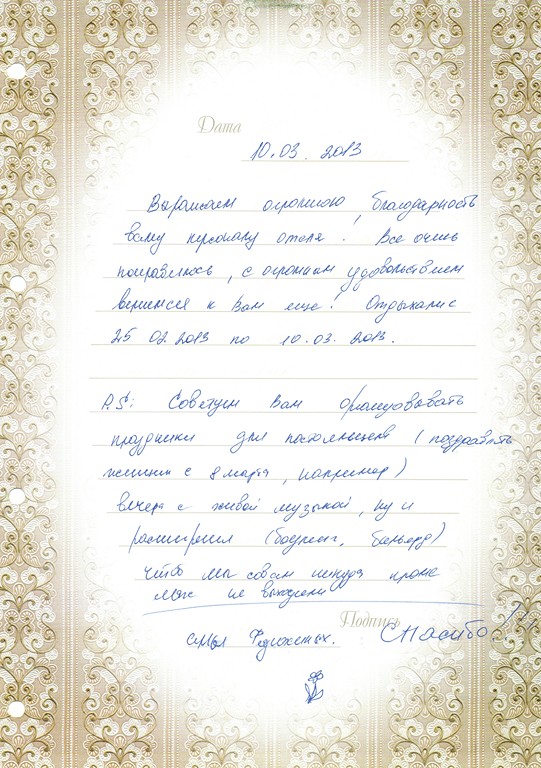 Дата
10.03.2013
Выражаем огромную благодарность
всему персоналу отеля! Все очень
понравилось, с огромным удовольствием
вернемся к Вам еще! Отдыхали с
25 02 2013 по 10.03.2013.
P.S: Советуем Вам организовывать
праздники для постояльцев (поздравить
женщин с 8 марта, например)
вечера с живой музыкой, ну и
расширения (боулинг, бильярд)
чтоб мы совсем никуда кроме
не выходили
Подпись
Спасибо!!
семья